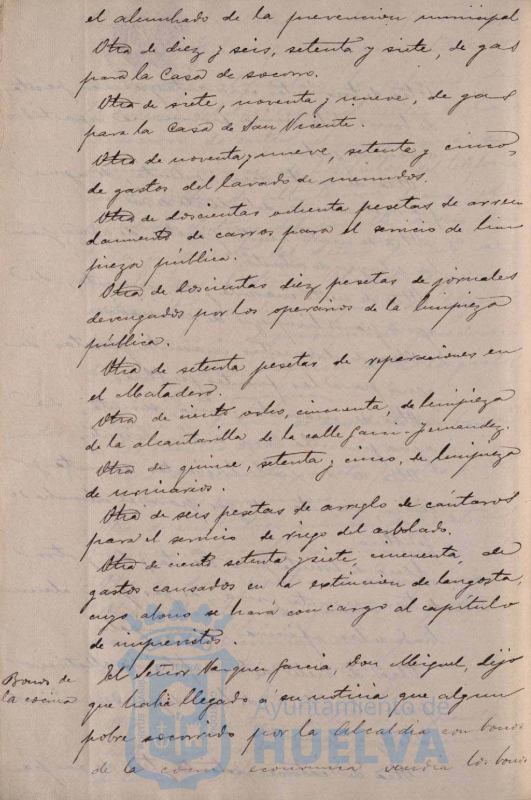 el alumbrado de la prevención municipal
Otra de diez y seis, setenta y siete, de gas
para la Casa de socorro.
Otra de siete, noventa y nueve, de gas
para la Casa de San Vicente.
Otra de noventa y nueve, setenta y cinco,
de gastos del lavado de menudos.
Otra de doscientas ochenta pesetas de arren
damiento de carros para el servicio de lim
pieza pública.
Otra de doscientas diez pesetas de jornales
devengados por los operarios de la limpieza
pública.
Otra de setenta pesetas de reparaciones en
el Matadero.
Otra de ciento ocho, cincuenta, de limpieza
de la alcantarilla de la calle Garci-Fernandez.
Otra de quince, setenta y cinco, de limpieza
de urinarios.
Otra de seis pesetas de arreglo de cántaros
para el servicio de riego del arbolado.
Otra de ciento setenta y siete, cincuenta, de
gastos causados en la extinción de langosta,
cuyo abono se hará con cargo al capítulo
de imprevistos.
Bonos de
la cocina
El Señor Vazquez Garcia, Don Miguel, dijo
que había llegado a su noticia que algun
pobre socorrido por la Alcaldía con bonos
de la cocina economica vendía los bonos
Ayuntamiento de
HUELVA